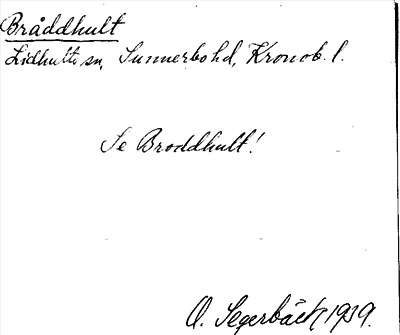 Bråddhult
Lidhults sn, Sunnerbo hd, Kronob. l.
Se Broddhult!
O. Segerbäck 1919.